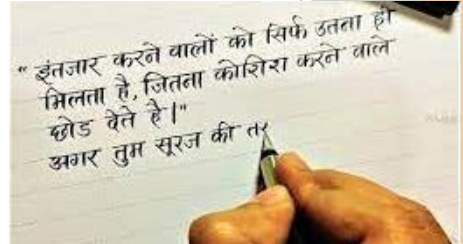 "इंतजार करने वालों को सिर्फ उतना ही
मिलता है, जितना कोशिश करने वाले
छोड देते है।"
अगर तुम सूरज की तर